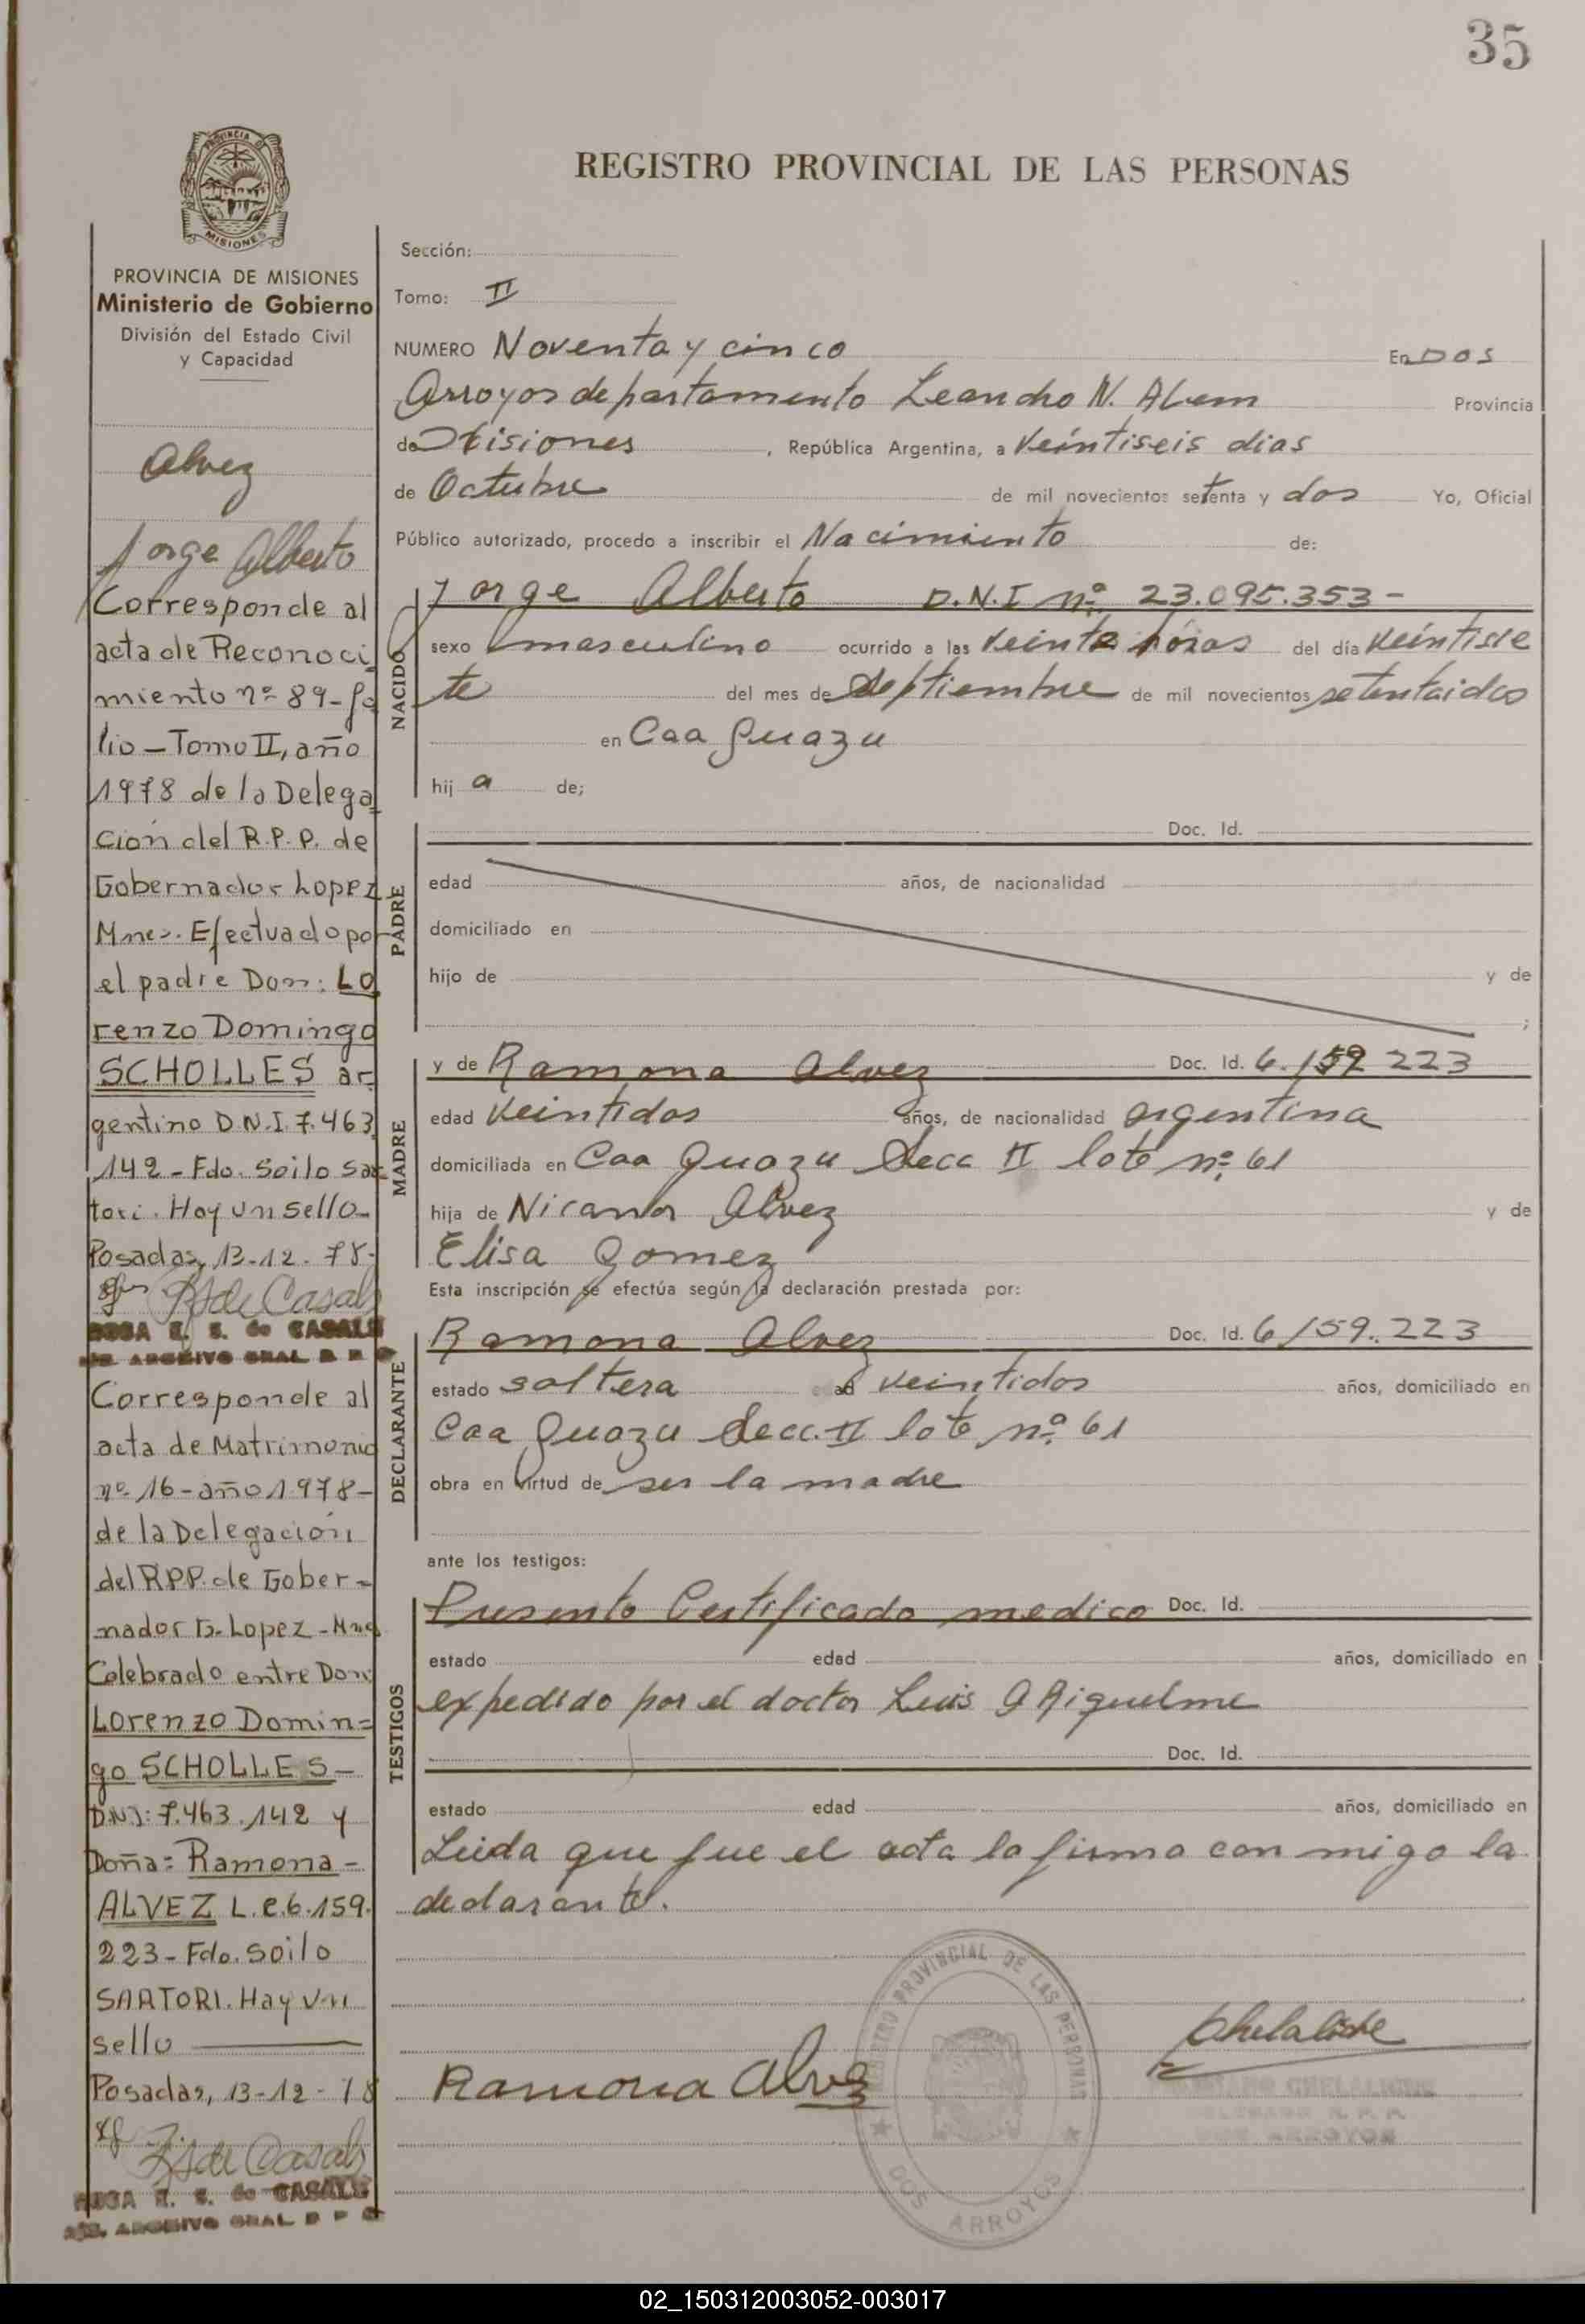 35
PROVINCIA
MISIONES
REGISTRO PROVINCIAL DE LAS PERSONAS
PROVINCIA DE MISIONES
Ministerio de Gobierno
División del Estado Civil
y Capacidad
Alvez
Jorge Alberto
Corresponde al
acta de Reconoci
miento nº 89-fo
lio-Tomo II, año
1978 de la Delega
ción del R.P.P. de
Gobernador Lopez
Mnes. Efectuado por
el padre Don: LO
renzo Domingo
SCHOLLES ar
gentino D.N.I. 7.463
142-Fdo. Soilo Sar
tori. Hay un sello-
Posadas, 13-12-78-
R S de Casals
ROSA E. S. de CASALS
ARCHIVO GRAL R P P
Corresponde al
acta de Matrimonio
nº 16-año 1978-
de la Delegación
del R.P.P. de Gober-
nador G. Lopez-Mnes
Celebrado entre Don:
Lorenzo Domin=
go SCHOLLES-
D.N.I: 7.463.142 y
Doña: Ramona-
ALVEZ L.C.6.159.
223-Fdo. Soilo
SARTORI. Hay un
sello
Posadas, 13-12-78
R S de Casals
ROSA E. S. de CASALS
ARCHIVO GRAL R P P
Sección:
Tomo: II
NUMERO Noventa y cinco En Dos
Arroyos departamento Leandro N. Alem Provincia
de Misiones, República Argentina, a Veintiseis dias
de Octubre de mil novecientos setenta y dos Yo, Oficial
Público autorizado, procedo a inscribir el Nacimiento de:
NACIDO
Jorge Alberto D.N.I nº 23.095.353-
sexo masculino ocurrido a las Veinte horas del día Veintisie
te del mes de Septiembre de mil novecientos setentaidos
en Caa Guazu
hij a de;
PADRE
Doc. Id.
edad años, de nacionalidad
domiciliado en
hijo de y de
;
MADRE
y de Ramona Alvez Doc. Id. 6.159 223
edad Veintidos años, de nacionalidad argentina
domiciliada en Caa Guazu Secc II lote nº 61
hija de Nicanor Alvez y de
Elisa Gomez
Esta inscripción se efectúa según la declaración prestada por:
DECLARANTE
Ramona Alvez Doc. Id. 6/59.223
estado soltera edad veintidos años, domiciliado en
Caa Guazu Secc. II lote nº 61
obra en virtud de ser la madre
ante los testigos:
TESTIGOS
Presento Certificado medico Doc. Id.
estado edad años, domiciliado en
expedido por el doctor Luis A Riquelme
Doc. Id.
estado edad años, domiciliado en
Leida que fue el acta la firma con migo la
declarante.
Ramona Alvez
REGISTRO PROVINCIAL DE LAS PERSONAS
DOS ARROYOS
02_150312003052-003017